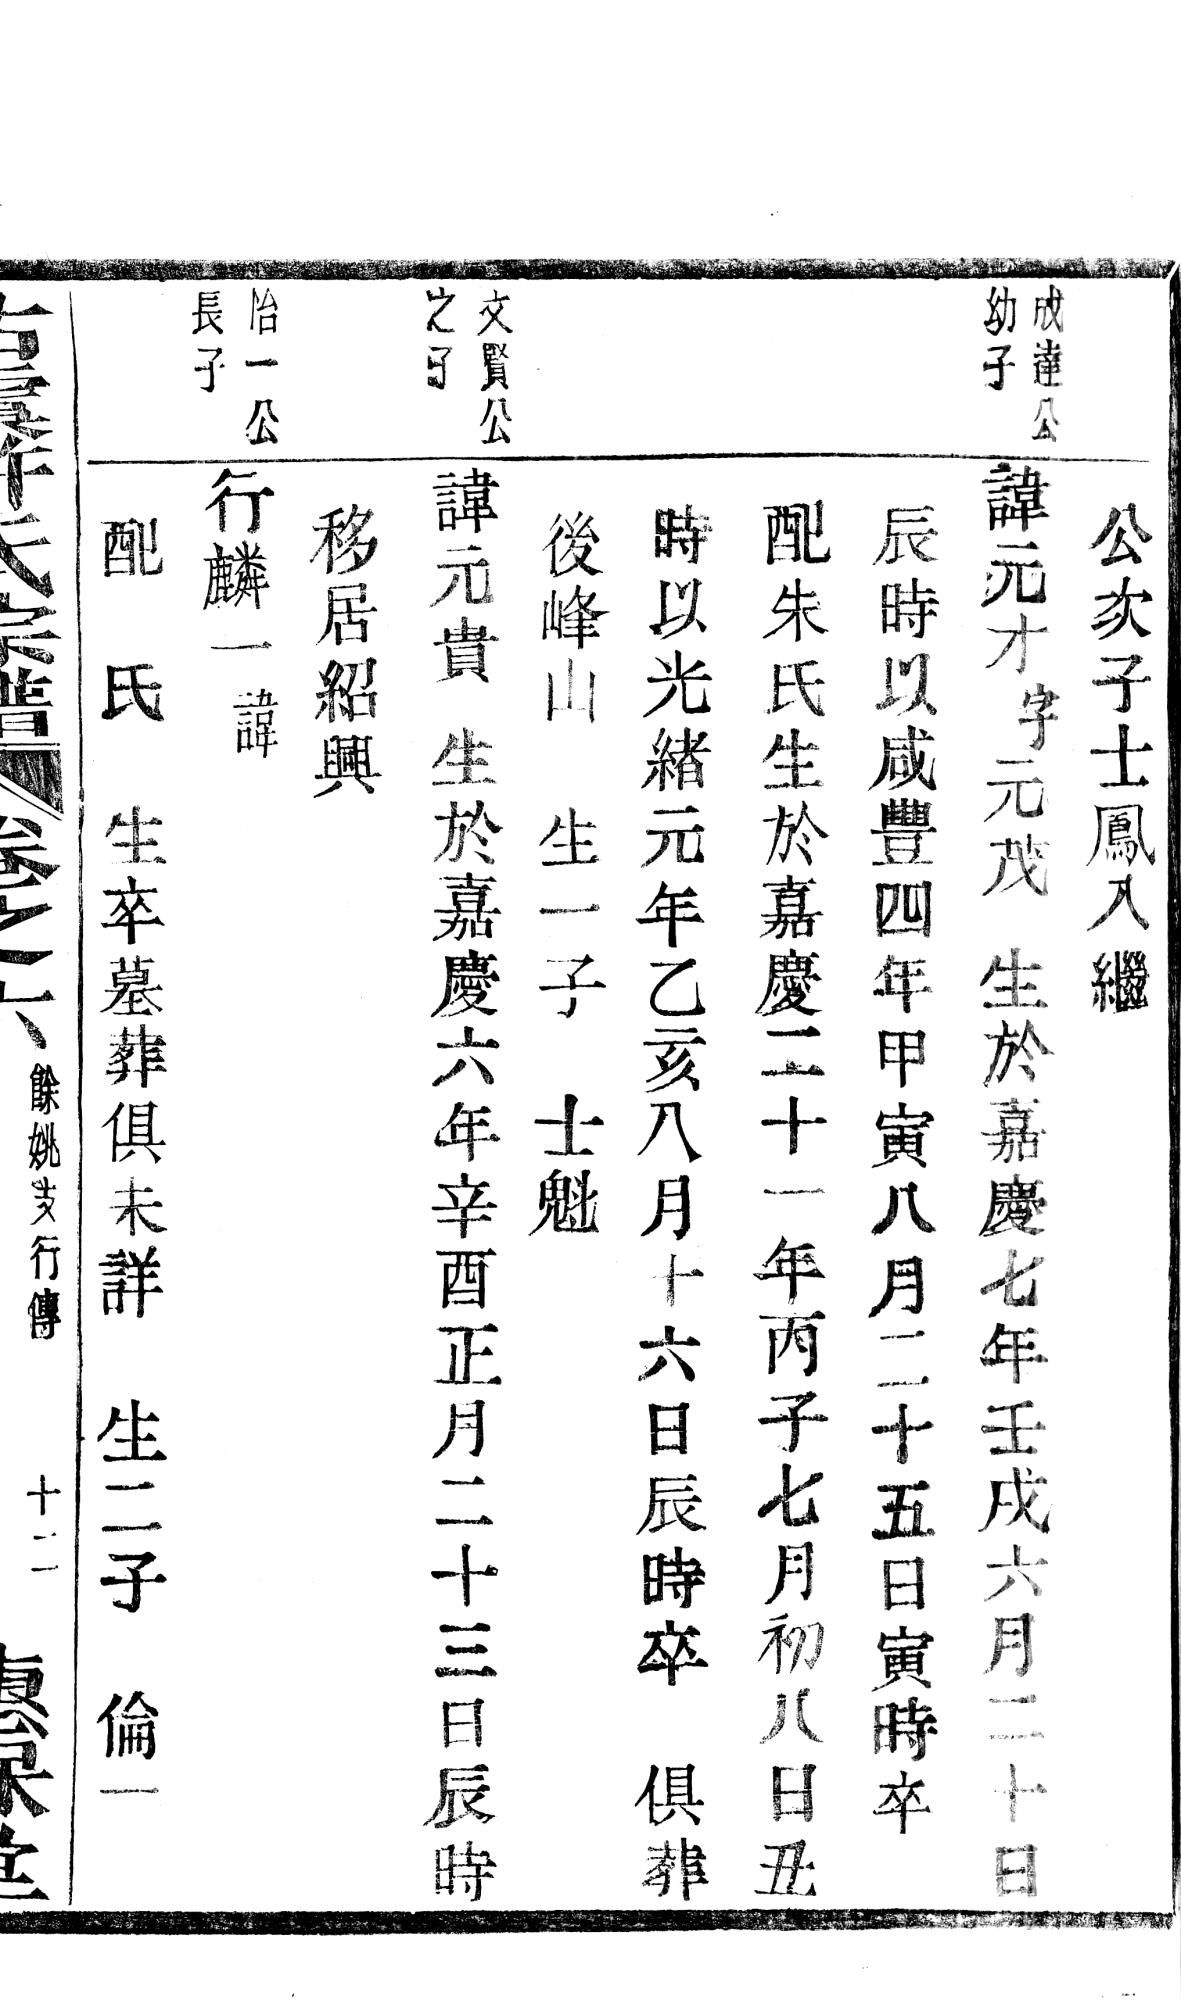 公次子士鳳入繼
成達公
幼子
諱元才字元茂 生於嘉慶七年壬戌六月二十日
辰時以咸豐四年甲寅八月二十五日寅時卒
配朱氏生於嘉慶二十一年丙子七月初八日丑
時以光緒元年乙亥八月十六日辰時卒 俱葬
後峰山 生一子 士魁
文賢公
之子
諱元貴 生於嘉慶六年辛酉正月二十三日辰時
移居紹興
怡一公
長子
行麟一諱
配 氏 生卒墓葬俱未詳 生二子 倫一
古虞許氏宗譜 卷之六 餘姚支行傳 十二 惠保堂